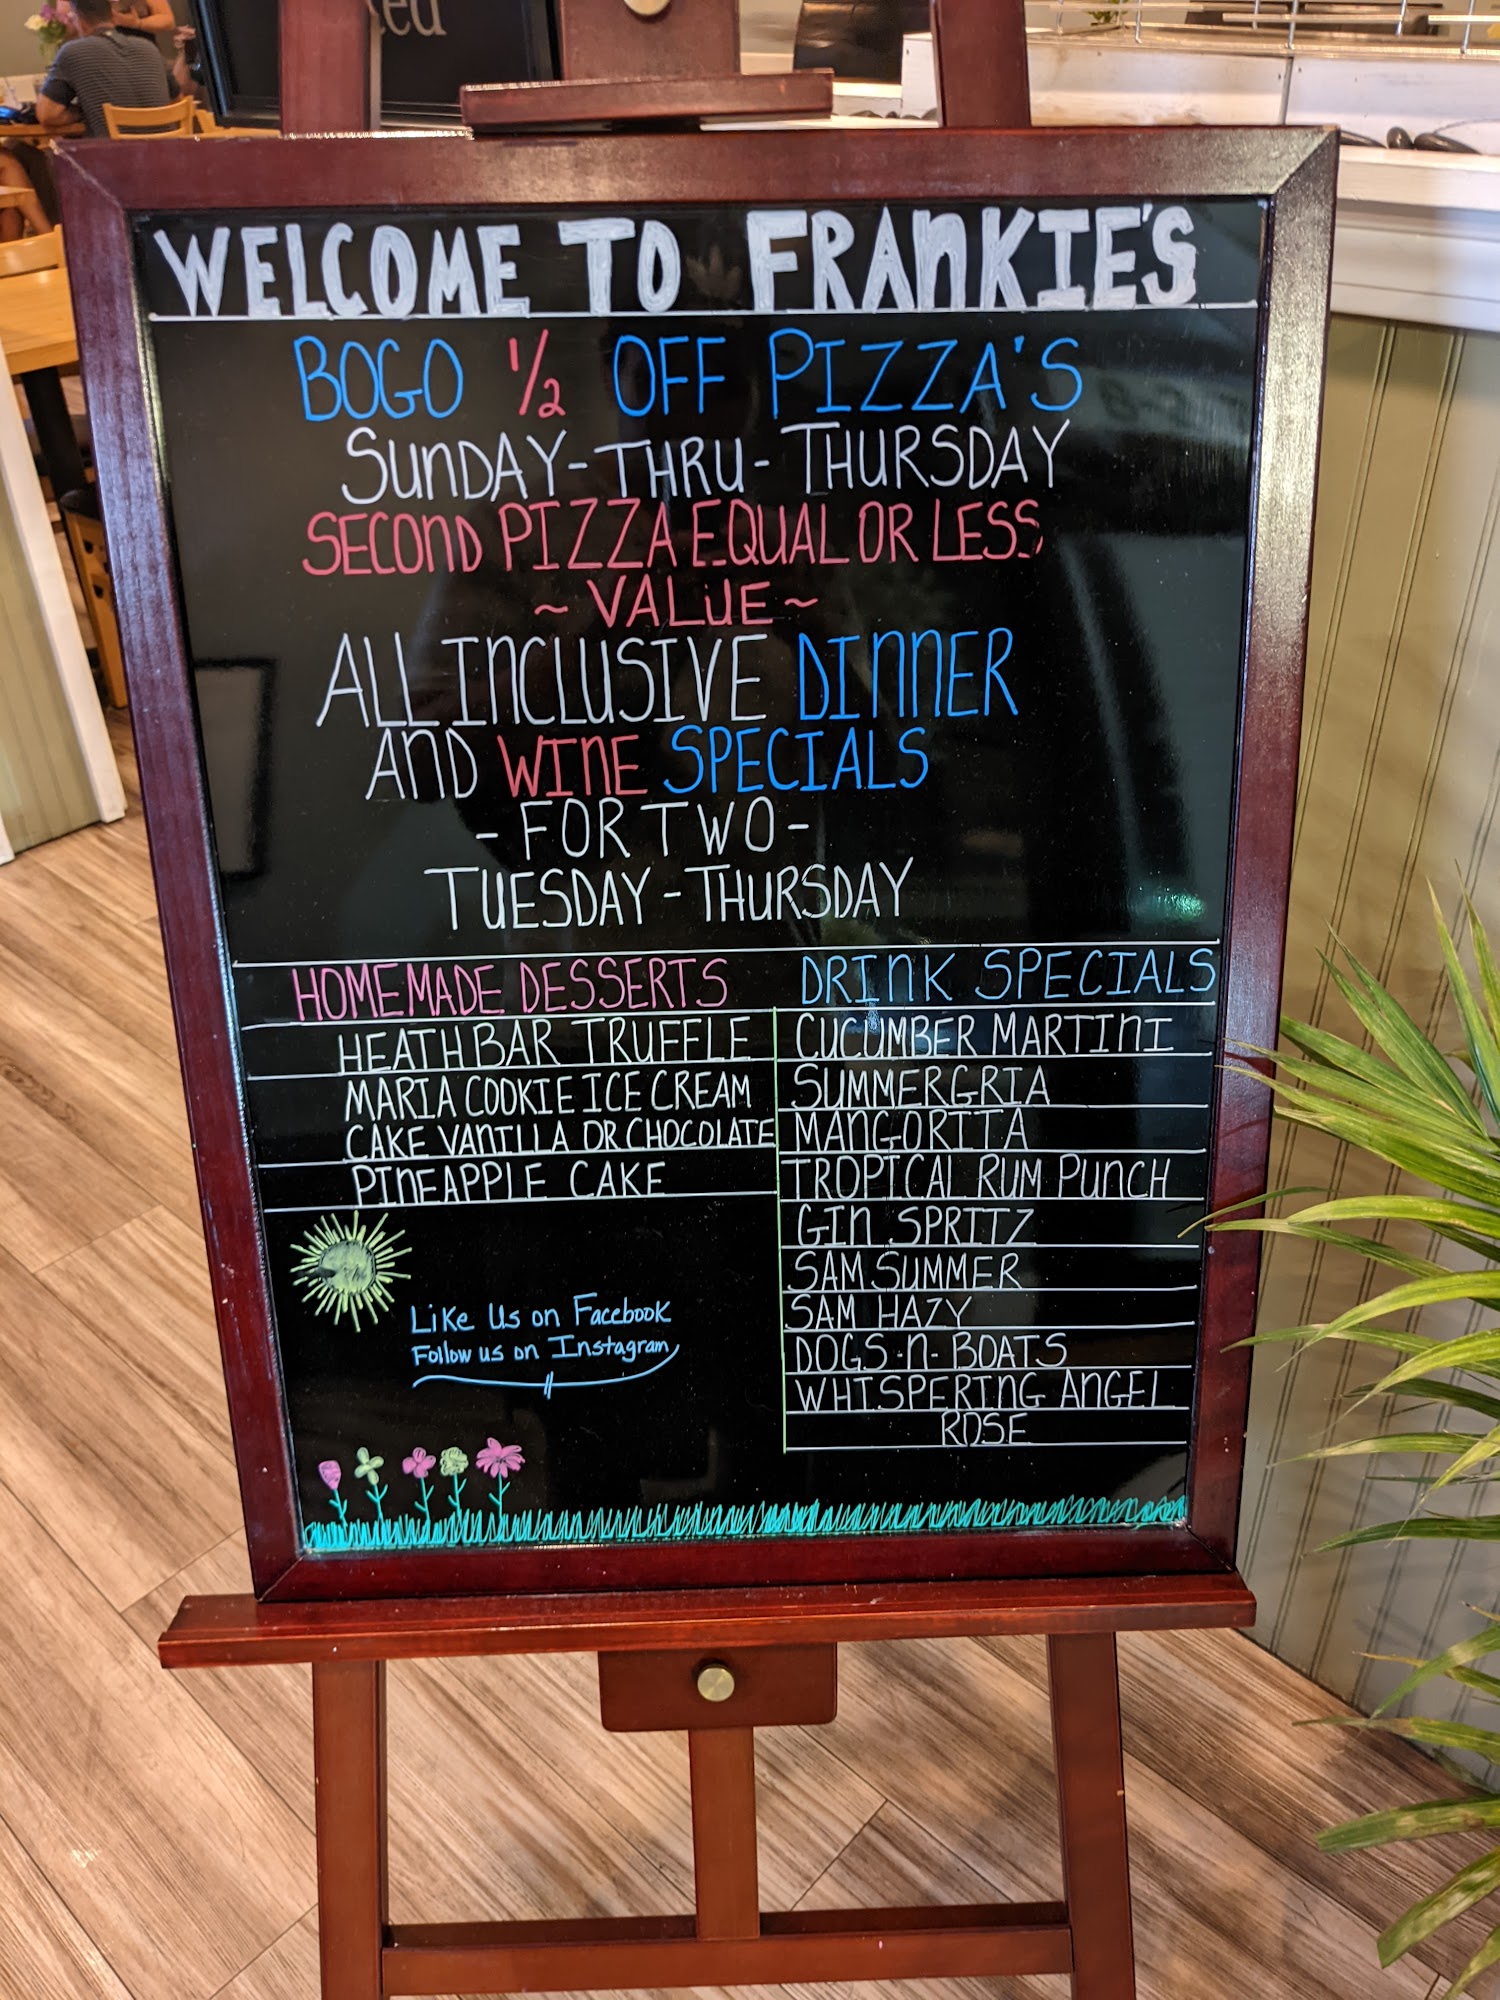 WELCOME TO FRANKIE'S
BOGO 1/2 OFF PIZZA'S
SUNDAY-THRU-THURSDAY
SECOND PIZZA EQUAL OR LESS
~ VALUE ~
ALL INCLUSIVE DINNER
AND WINE SPECIALS
- FOR TWO -
TUESDAY - THURSDAY
HOMEMADE DESSERTS
HEATH BAR TRUFFLE
MARIA COOKIE ICE CREAM
CAKE VANILLA OR CHOCOLATE
PINEAPPLE CAKE
Like Us on Facebook
Follow us on Instagram
DRINK SPECIALS
CUCUMBER MARTINI
SUMMERGRIA
MANGORITA
TROPICAL RUM PUNCH
GIN SPRITZ
SAM SUMMER
SAM HAZY
DOGS-N-BOATS
WHISPERING ANGEL
ROSE